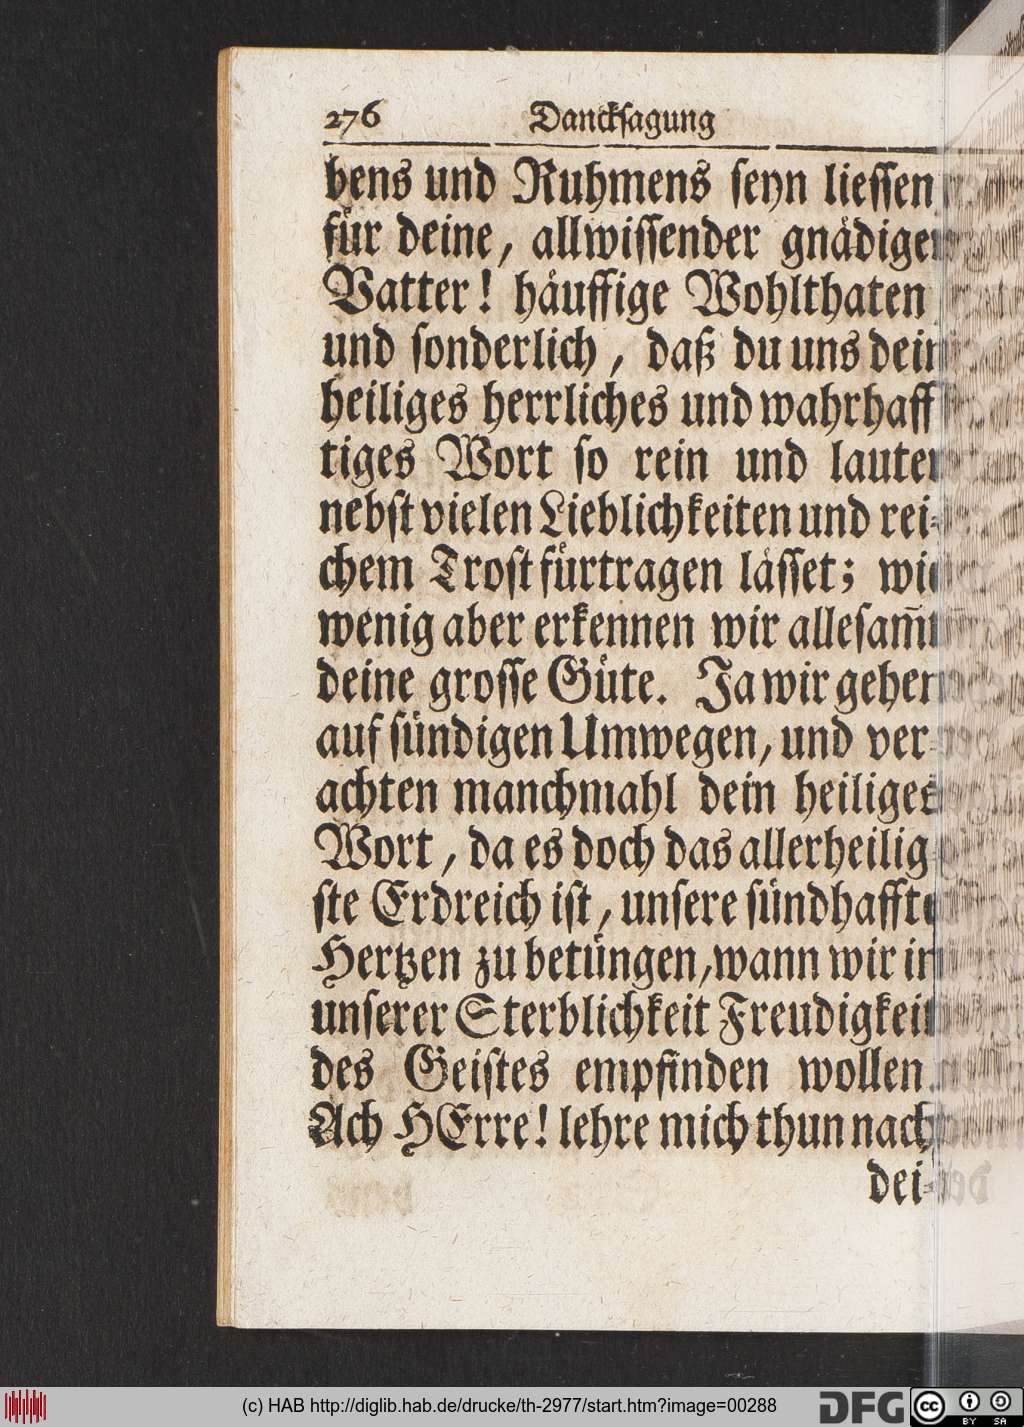 276 Dancksagung
bens und Ruhmens seyn liessen
für deine, allwissender gnädiger
Vatter! häuffige Wohlthaten
und sonderlich, daß du uns dein
heiliges herrliches und wahrhaff
tiges Wort so rein und lauter
nebst vielen Lieblichkeiten und rei-
chem Trost fürtragen lässet; wie
wenig aber erkennen wir allesam̄t
deine grosse Güte. Ja wir gehen
auf sündigen Umwegen, und ver-
achten manchmahl dein heiliges
Wort, da es doch das allerheilig-
ste Erdreich ist, unsere sündhaffte
Hertzen zu betüngen, wann wir in
unserer Sterblichkeit Freudigkeit
des Geistes empfinden wollen.
Ach HErre! lehre mich thun nach
dei-
(c) HAB http://diglib.hab.de/drucke/th-2977/start.htm?image=00288
DFG
cc BY SA